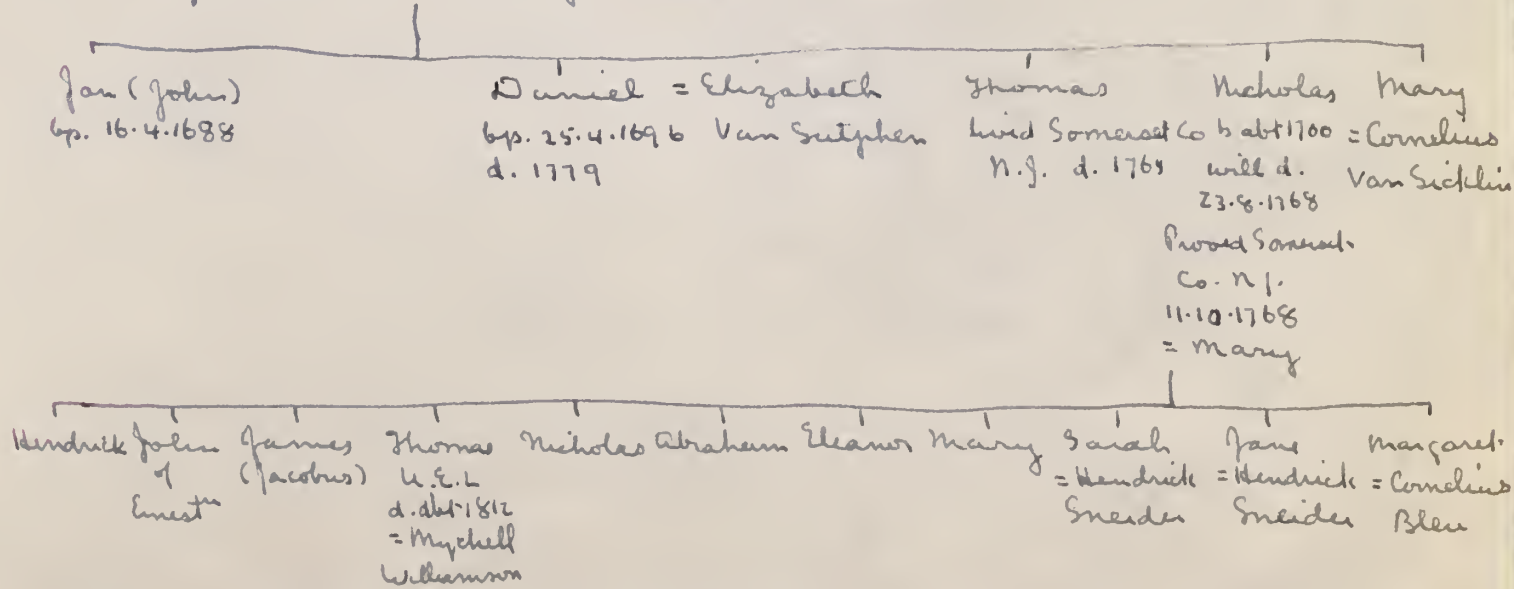 Jan (John)
bp. 16.4.1688
Daniel = Elizabeth
bp. 25.4.1696 Van Sutphen
d. 1779
Thomas
livid Somerset Co
N.J. d. 1769
Nicholas
b abt 1700
will d.
23.8.1768
Proved Somerset
Co. N J.
11.10.1768
= Mary
Mary
= Cornelius
Van Sicklin
Hendrick
John
of
James
(Jacobus)
Thomas
U.E.L
d. abt 1812
= Mychell
Williamson
Nicholas
Abraham
Eleanor
Mary
Sarah
= Hendrick
Sneider
Jane
= Hendrick
Sneider
Margaret
= Cornelius
Bleu